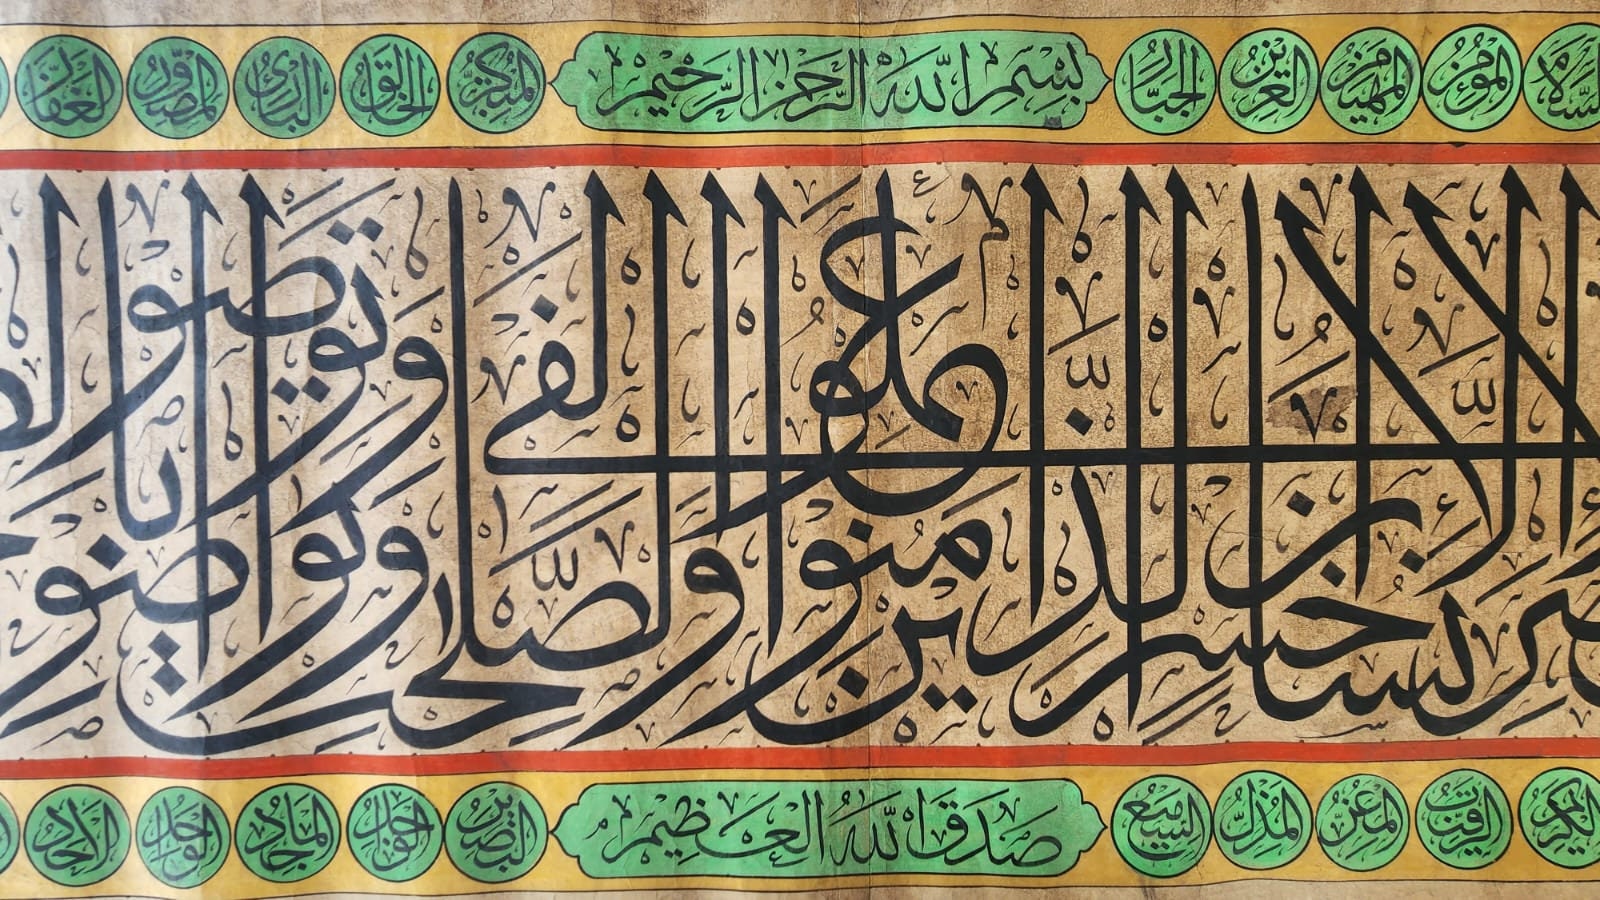 السلام المؤمن المهيمن العزيز الجبار بسم الله الرحمن الرحيم المتكبر الخالق البارئ المصور الغفار
ان الانسان لفى خسر الا الذين امنوا وعملوا الصلحت وتواصوا بالحق وتواصوا
الكريم الرقيب المعز المذل السميع صدق الله العظيم البصير الماجد الواحد الاحد